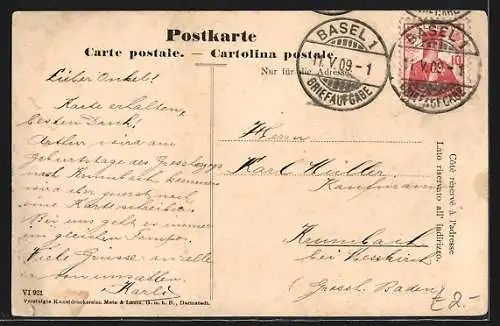 Postkarte
Carte postale. — Cartolina postale
Nur für die Adresse.
BASEL 1
11.V.09-1
BRIEFAUFGABE
BASEL 1
V.09-
BRIEFAUFGABE
10
Lieber Onkel!
Karte erhalten,
besten Dank!
wird am
Geburtstage des
nach Krumbach kommen
wird aber zuerst noch
eine Karte schreiben.
Bei uns geht es immer
im gleichen Tempo.
Viele Grüsse an alle
von uns allen
Karl
Herrn
Karl Müller
Kaufmann
Krumbach
bei Messkirch
(Grossh. Baden)
Côté réservé à l'adresse
Lato riservato all' indirizzo.
VI 921
Vereinigte Kunstdruckereien Metz & Lautz, G. m. b. H., Darmstadt.
2.-